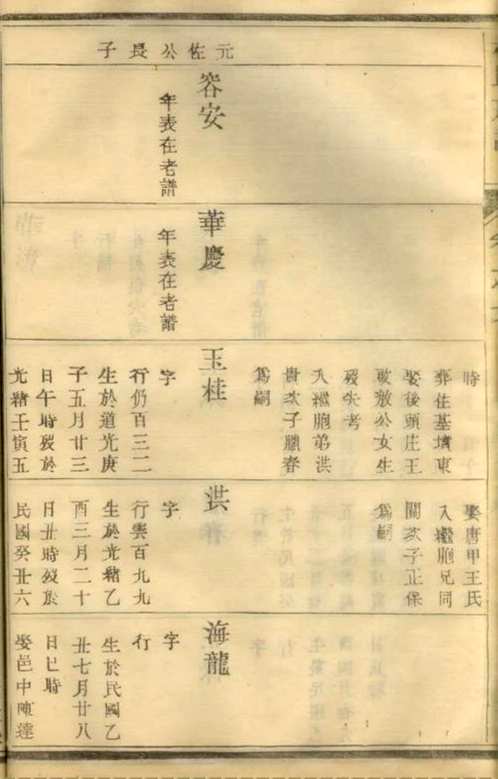 元佐公長子
容安
年表在老譜
華慶
年表在老譜
時
葬住基墳東
娶後頭庄王
啟教公女生
歿失考
入繼胞弟洪
貴次子
為嗣
玉桂
字
行仍百三二
生於道光庚
子五月廿三
日午時歿於
光緒壬寅五
娶唐甲王氏
入繼胞兄同
關次子正保
為嗣
洪
字
行雲百九九
生於光緒乙
酉三月二十
日丑時歿於
民國癸丑六
海龍
字
行
生於民國乙
丑七月廿八
日巳時
娶邑中陳達